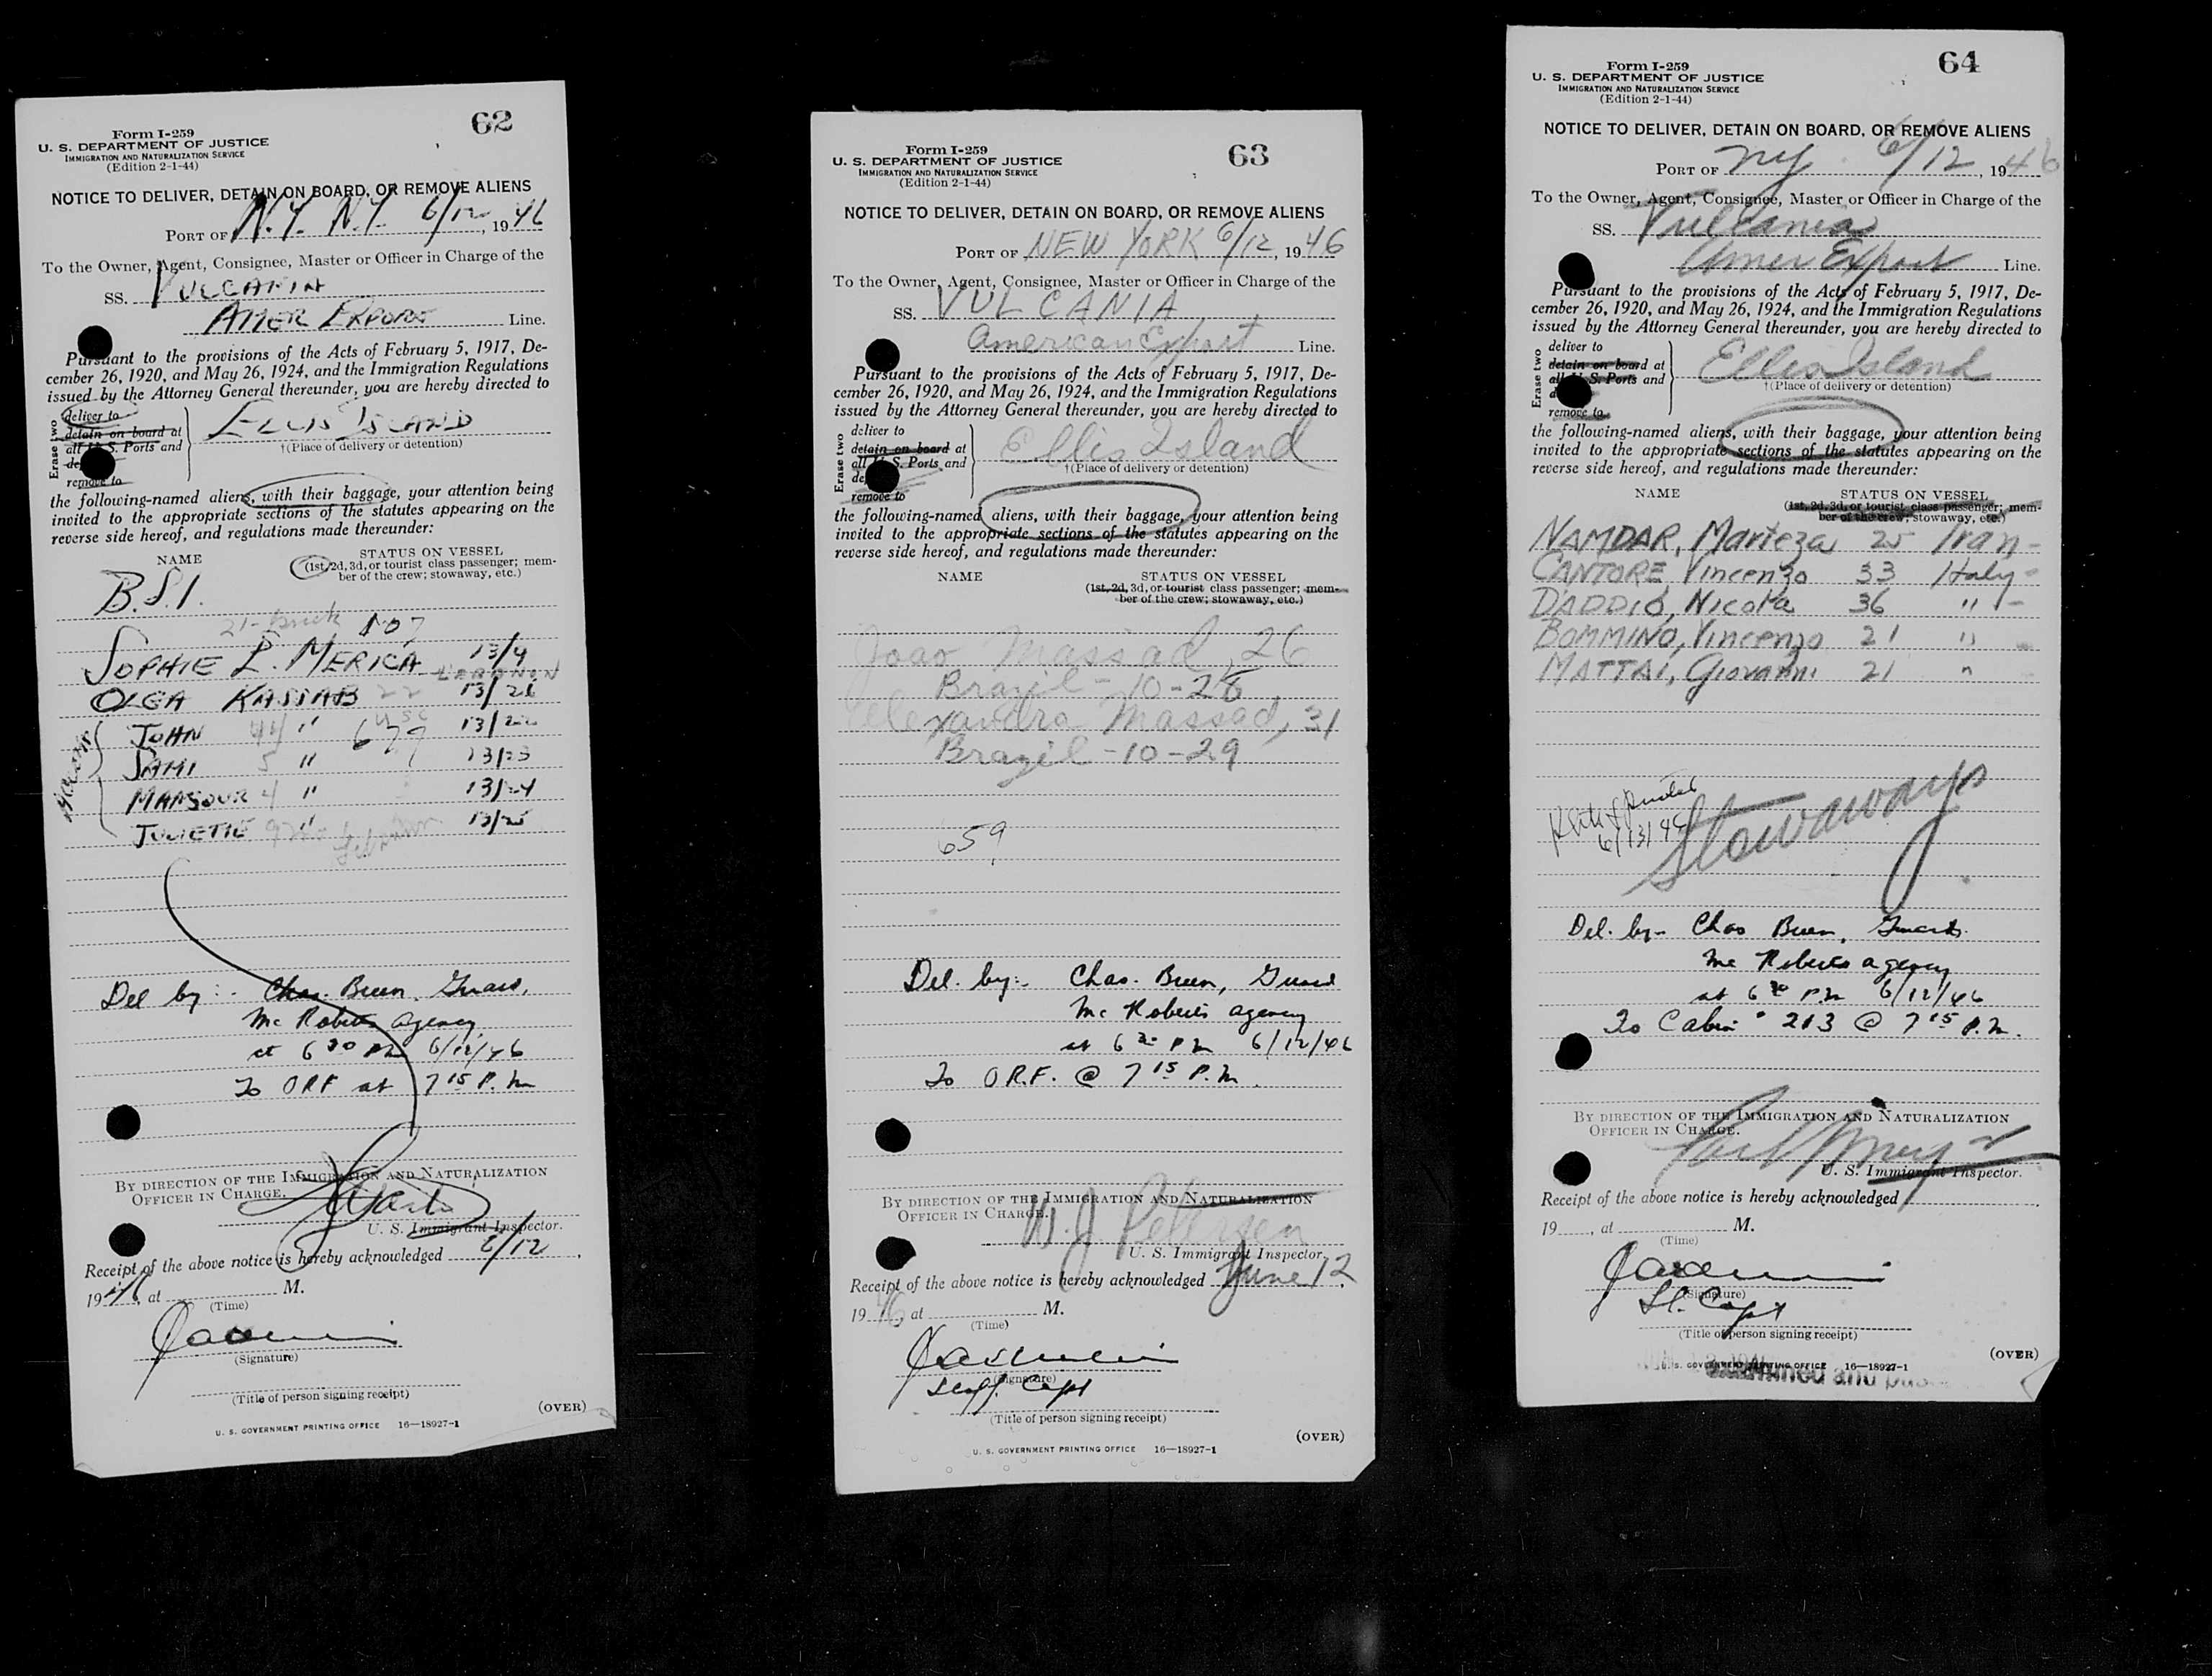 62
Form I-259
U. S. DEPARTMENT OF JUSTICE
IMMIGRATION AND NATURALIZATION SERVICE
(Edition 2-1-44)
NOTICE TO DELIVER, DETAIN ON BOARD, OR REMOVE ALIENS
PORT OF N.Y. N.Y. 6/12, 1946
To the Owner, Agent, Consignee, Master or Officer in Charge of the
SS. VULCANIA
AMER EXPORT Line.
Pursuant to the provisions of the Acts of February 5, 1917, De-
cember 26, 1920, and May 26, 1924, and the Immigration Regulations
issued by the Attorney General thereunder, you are hereby directed to
Erase two
deliver to
detain on board at
all U. S. Ports and
remove to
ELLIS ISLAND
†(Place of delivery or detention)
the following-named aliens, with their baggage, your attention being
invited to the appropriate sections of the statutes appearing on the
reverse side hereof, and regulations made thereunder:
NAME STATUS ON VESSEL
(1st, 2d, 3d, or tourist class passenger; mem-
ber of the crew; stowaway, etc.)
B.S.I.
SOPHIE L. MERICA 13/4
LEBANON
OLGA KASSAB 22 13/21
JOHN 44 " 679 13/22
SAMI 5 " 13/23
MANSOUR 4 " 13/24
JULIETTE " 13/25
Del by:- Chas. Breen, Guard,
Mc Roberts agency
at 6 30 PM 6/12/46
To ORF at 7 15 P.M
BY DIRECTION OF THE IMMIGRATION AND NATURALIZATION
OFFICER IN CHARGE.
U. S. Immigrant Inspector.
Receipt of the above notice is hereby acknowledged 6/12,
1946, at M.
(Time)
(Signature)
(Title of person signing receipt)
(OVER)
U. S. GOVERNMENT PRINTING OFFICE 16—18927-1
63
Form I-259
U. S. DEPARTMENT OF JUSTICE
IMMIGRATION AND NATURALIZATION SERVICE
(Edition 2-1-44)
NOTICE TO DELIVER, DETAIN ON BOARD, OR REMOVE ALIENS
PORT OF NEW YORK 6/12, 1946
To the Owner, Agent, Consignee, Master or Officer in Charge of the
SS. VULCANIA
American Export Line.
Pursuant to the provisions of the Acts of February 5, 1917, De-
cember 26, 1920, and May 26, 1924, and the Immigration Regulations
issued by the Attorney General thereunder, you are hereby directed to
Erase two
deliver to
detain on board at
all U. S. Ports and
remove to
Ellis Island
†(Place of delivery or detention)
the following-named aliens, with their baggage, your attention being
invited to the appropriate sections of the statutes appearing on the
reverse side hereof, and regulations made thereunder:
NAME STATUS ON VESSEL
(1st, 2d, 3d, or tourist class passenger; mem-
ber of the crew; stowaway, etc.)
Joao Massad, 26
Brazil - 10-28
Alexandra Massad, 31
Brazil - 10-29
659
Del. by:- Chas. Breen, Guard
Mc Roberts agency
at 6 30 PM 6/12/46
To O.R.F. @ 7 15 P.M.
BY DIRECTION OF THE IMMIGRATION AND NATURALIZATION
OFFICER IN CHARGE.
W. J. Petersen
U. S. Immigrant Inspector.
Receipt of the above notice is hereby acknowledged June 12,
1946, at M.
(Time)
(Signature)
Staff Capt
(Title of person signing receipt)
(OVER)
U. S. GOVERNMENT PRINTING OFFICE 16—18927-1
64
Form I-259
U. S. DEPARTMENT OF JUSTICE
IMMIGRATION AND NATURALIZATION SERVICE
(Edition 2-1-44)
NOTICE TO DELIVER, DETAIN ON BOARD, OR REMOVE ALIENS
PORT OF NY 6/12, 1946
To the Owner, Agent, Consignee, Master or Officer in Charge of the
SS. Vulcania
Amer Export Line.
Pursuant to the provisions of the Acts of February 5, 1917, De-
cember 26, 1920, and May 26, 1924, and the Immigration Regulations
issued by the Attorney General thereunder, you are hereby directed to
Erase two
deliver to
detain on board at
all U. S. Ports and
remove to
Ellis Island
†(Place of delivery or detention)
the following-named aliens, with their baggage, your attention being
invited to the appropriate sections of the statutes appearing on the
reverse side hereof, and regulations made thereunder:
NAME STATUS ON VESSEL
(1st, 2d, 3d, or tourist class passenger; mem-
ber of the crew; stowaway, etc.)
NAMDAR, Marteza 25 Iran -
CANTORE, Vincenzo 33 Italy -
D'ADDIO, Nicola 36 " -
BOMMINO, Vincenzo 21 "
MATTAI, Giovanni 21 "
6/13/46
Stowaways
Del. by- Chas Breen, Guard.
Mc Roberts agency
at 6 30 P.M 6/12/46
To Cabin 213 @ 7 15 P.M.
BY DIRECTION OF THE IMMIGRATION AND NATURALIZATION
OFFICER IN CHARGE.
U. S. Immigrant Inspector.
Receipt of the above notice is hereby acknowledged
19, at M.
(Time)
(Signature)
St. Capt
(Title of person signing receipt)
(OVER)
U. S. GOVERNMENT PRINTING OFFICE 16—18927-1